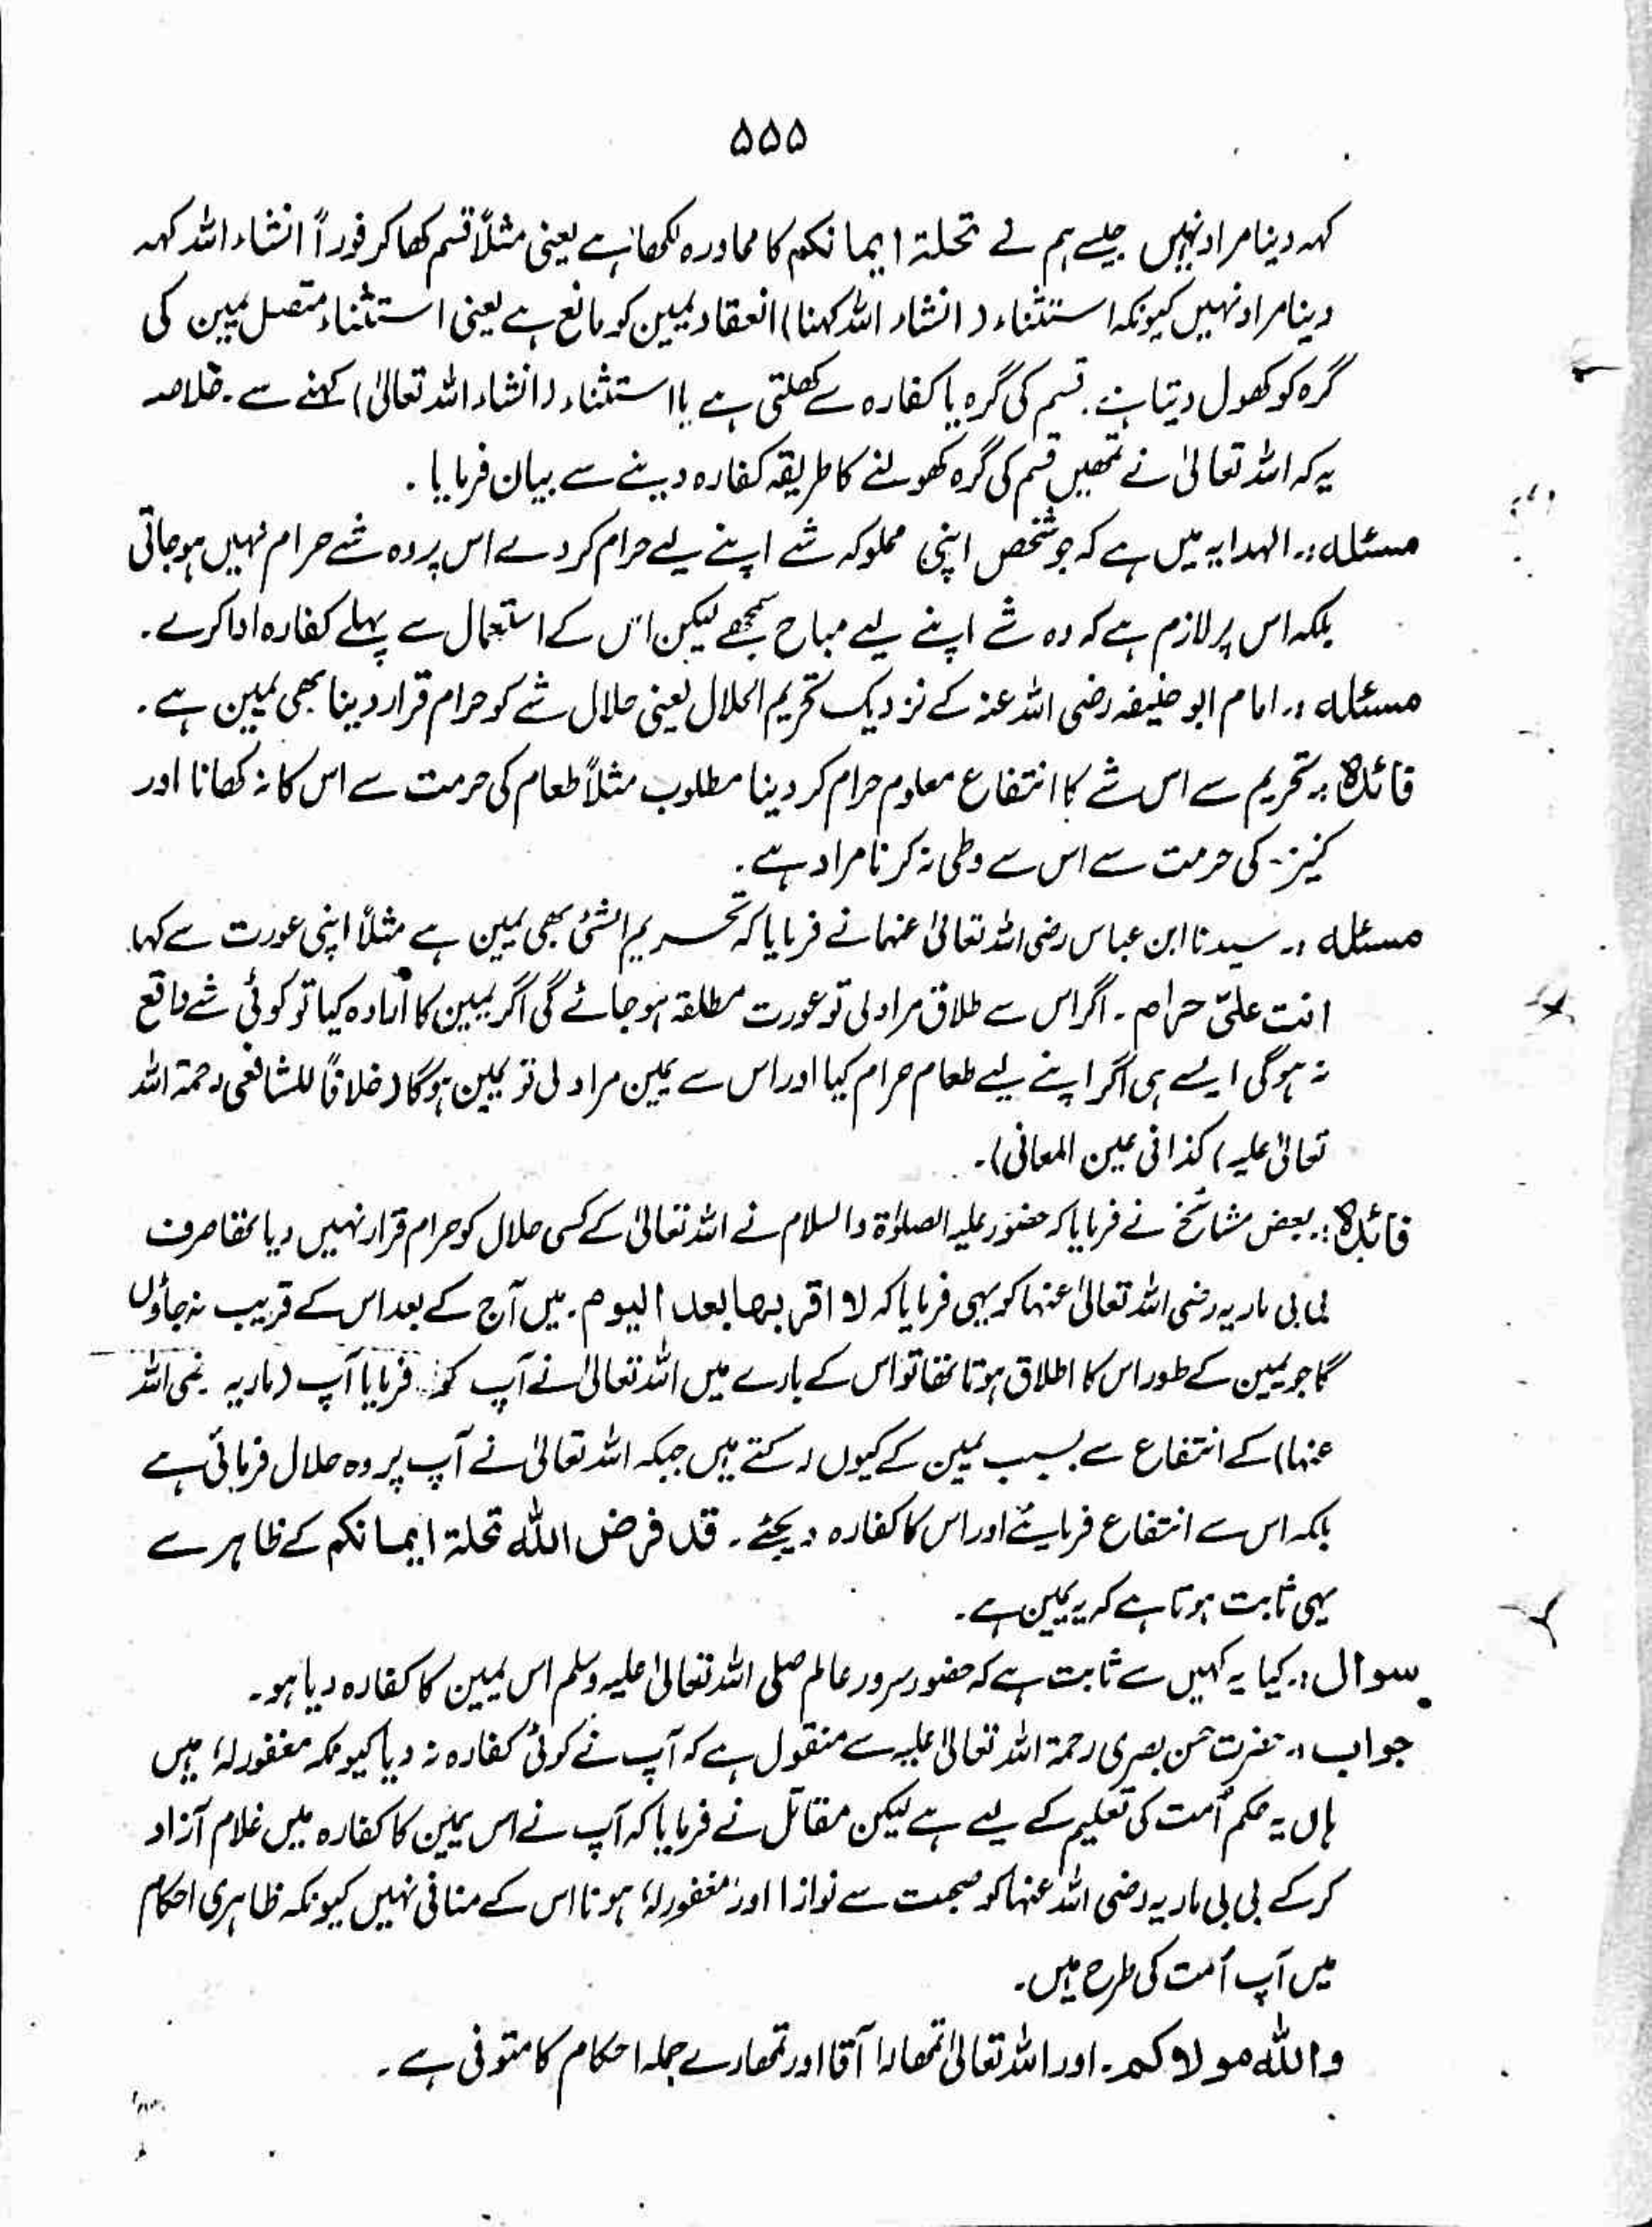 ۵۵۵
کہہ دینا مراد نہیں جیسے ہم نے تحلۃ ایمانکم کا محاورہ لکھا ہے یعنی مثلاً قسم کھا کر فوراً انشاء اللہ کہہ
دینا مراد نہیں کیونکہ استثناء (انشاء اللہ کہنا) انعقاد یمین کو مانع ہے یعنی استثناء متصل یمین کی
گرہ کو کھول دیتا ہے۔ قسم کی گرہ یا کفارہ سے کھلتی ہے یا استثناء (انشاء اللہ تعالیٰ) کہنے سے۔ خلاصہ
یہ کہ اللہ تعالیٰ نے تمھیں قسم کی گرہ کھولنے کا طریقہ کفارہ دینے سے بیان فرمایا۔
مسئلہ:۔ الہدایہ میں ہے کہ جو شخص اپنی مملوکہ شے اپنے لیے حرام کر دے اس پر وہ شے حرام نہیں ہو جاتی
بلکہ اس پر لازم ہے کہ وہ شے اپنے لیے مباح سمجھے لیکن اس کے استعمال سے پہلے کفارہ ادا کرے۔
مسئلہ:۔ امام ابو حنیفہ رضی اللہ عنہ کے نزدیک تحریم الحلال یعنی حلال شے کو حرام قرار دینا بھی یمین ہے۔
فائدہ:۔ تحریم سے اس شے کا انتفاع معلوم حرام کر دینا مطلوب مثلاً طعام کی حرمت سے اس کا نہ کھانا اور
کنیز کی حرمت سے اس سے وطی نہ کرنا مراد ہے۔
مسئلہ:۔ سیدنا ابن عباس رضی اللہ تعالیٰ عنہما نے فرمایا کہ تحریم الشئی بھی یمین ہے مثلاً اپنی عورت سے کہا۔
انت علیّ حرام۔ اگر اس سے طلاق مراد لی تو عورت مطلقہ ہو جائے گی اگر یمین کا ارادہ کیا تو کوئی شے واقع
نہ ہوگی ایسے ہی اگر اپنے لیے طعام حرام کیا اور اس سے یمین مراد لی تو یمین ہوگا (خلافاً للشافعی رحمۃ اللہ
تعالیٰ علیہ) کذا فی عین المعانی)۔
فائدہ:۔ بعض مشائخ نے فرمایا کہ حضور علیہ الصلوٰۃ والسلام نے اللہ تعالیٰ کے کسی حلال کو حرام قرار نہیں دیا تھا صرف
بی بی ماریہ رضی اللہ تعالیٰ عنہا کو یہی فرمایا کہ لا اقربھا بعد الیوم۔ میں آج کے بعد اس کے قریب نہ جاؤں
گا جو یمین کے طور اس کا اطلاق ہوتا تھا تو اس کے بارے میں اللہ تعالیٰ نے آپ کو فرمایا آپ (ماریہ رضی اللہ
عنہا) کے انتفاع سے بسبب یمین کے کیوں رکتے ہیں جبکہ اللہ تعالیٰ نے آپ پر وہ حلال فرمائی ہے
بلکہ اس سے انتفاع فرمایئے اور اس کا کفارہ دیجئے۔ قد فرض اللہ تحلۃ ایمانکم کے ظاہر سے
یہی ثابت ہوتا ہے کہ یہ یمین ہے۔
سوال:۔ کیا یہ کہیں سے ثابت ہے کہ حضور سرور عالم صلی اللہ تعالیٰ علیہ وسلم اس یمین کا کفارہ دیا ہو۔
جواب:۔ حضرت حسن بصری رحمۃ اللہ تعالیٰ علیہ سے منقول ہے کہ آپ نے کوئی کفارہ نہ دیا کیونکہ مغفور لہٗ ہیں
ہاں یہ حکم اُمت کی تعلیم کے لیے ہے لیکن مقاتل نے فرمایا کہ آپ نے اس یمین کا کفارہ میں غلام آزاد
کر کے بی بی ماریہ رضی اللہ عنہا کو صحبت سے نوازا اور مغفور لہٗ ہونا اس کے منافی نہیں کیونکہ ظاہری احکام
میں آپ اُمت کی طرح ہیں۔
واللہ مولاکم۔ اور اللہ تعالیٰ تمھارا آقا اور تمھارے جملہ احکام کا متوفی ہے۔